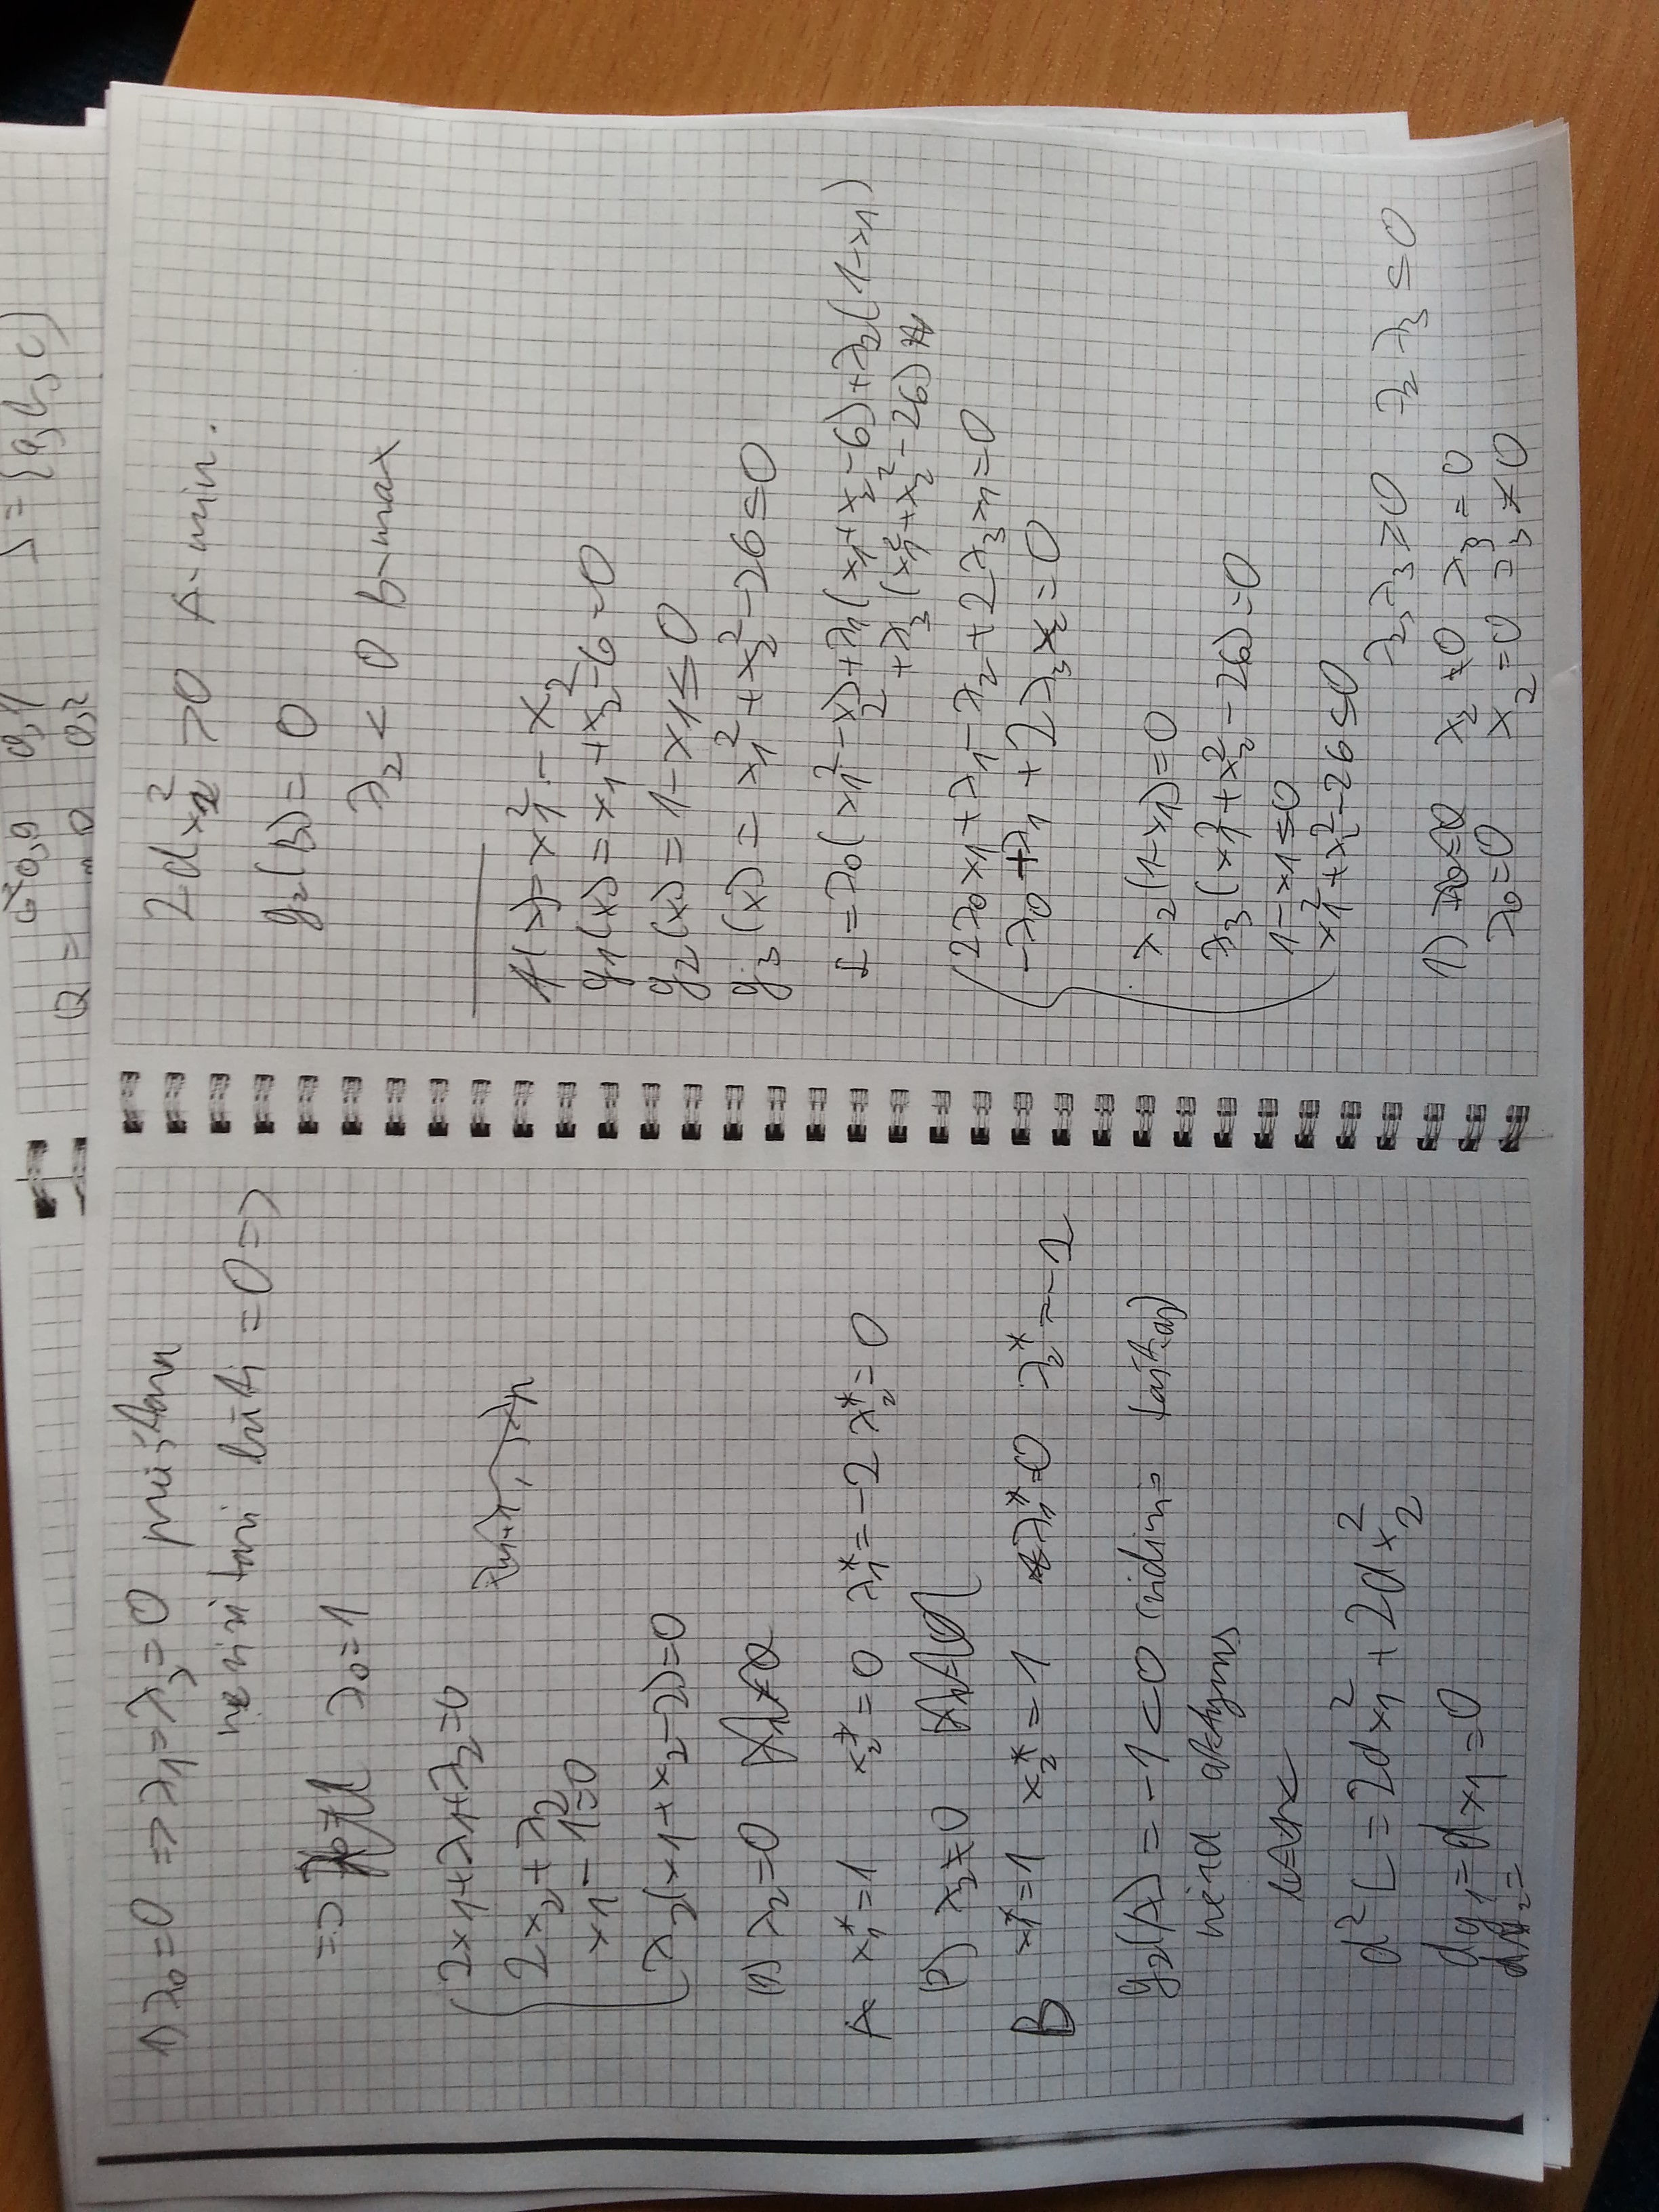 0,9 0,1 S = {a, b, c}
Q = 0 0,2
1) λ₀ = 0 => λ₁ = λ₂ = 0 prieštara
ne visi tari būti = 0 =>
=> λ₀ = 1
2x₁ + λ₁ + λ₂ = 0
2x₂ + λ₂
x₁ - 1 = 0
λ₂(x₁ + x₂ - 2) = 0
(1) λ₂ = 0
A x₁* = 1 x₂* = 0 λ₁* = -2 λ₂* = 0
(2) λ₂ ≠ 0
B x₁* = 1 x₂* = 1 λ₁* = 0 λ₂* = -2
g₂(A) = -1 < 0 (vidinis taškas)
nėra aktyvus
d²L = 2dx₁² + 2dx₂²
dg₁ = dx₁ = 0
2dx₂² > 0 A-min.
g₂(B) = 0
λ₂ < 0 B-max
f(x) = x₁² - x₂
g₁(x) = x₁ + x₂ - 6 = 0
g₂(x) = 1 - x₁ ≤ 0
g₃(x) = x₁² + x₂² - 26 ≤ 0
L = λ₀(x₁² - x₂) + λ₁(x₁ + x₂ - 6) + λ₂(1 - x₁)
+ λ₃(x₁² + x₂² - 26)
2λ₀x₁ + λ₁ - λ₂ + 2λ₃x₁ = 0
-λ₀ + λ₁ + 2λ₃x₂ = 0
λ₂(1 - x₁) = 0
λ₃(x₁² + x₂² - 26) = 0
1 - x₁ ≤ 0
x₁² + x₂² - 26 ≤ 0
λ₂, λ₃ ≥ 0 λ₂ λ₃ ≤ 0
1) λ₂ ≠ 0 λ₃ = 0
λ₀ = 0 λ₂ = 0 λ₃ ≠ 0